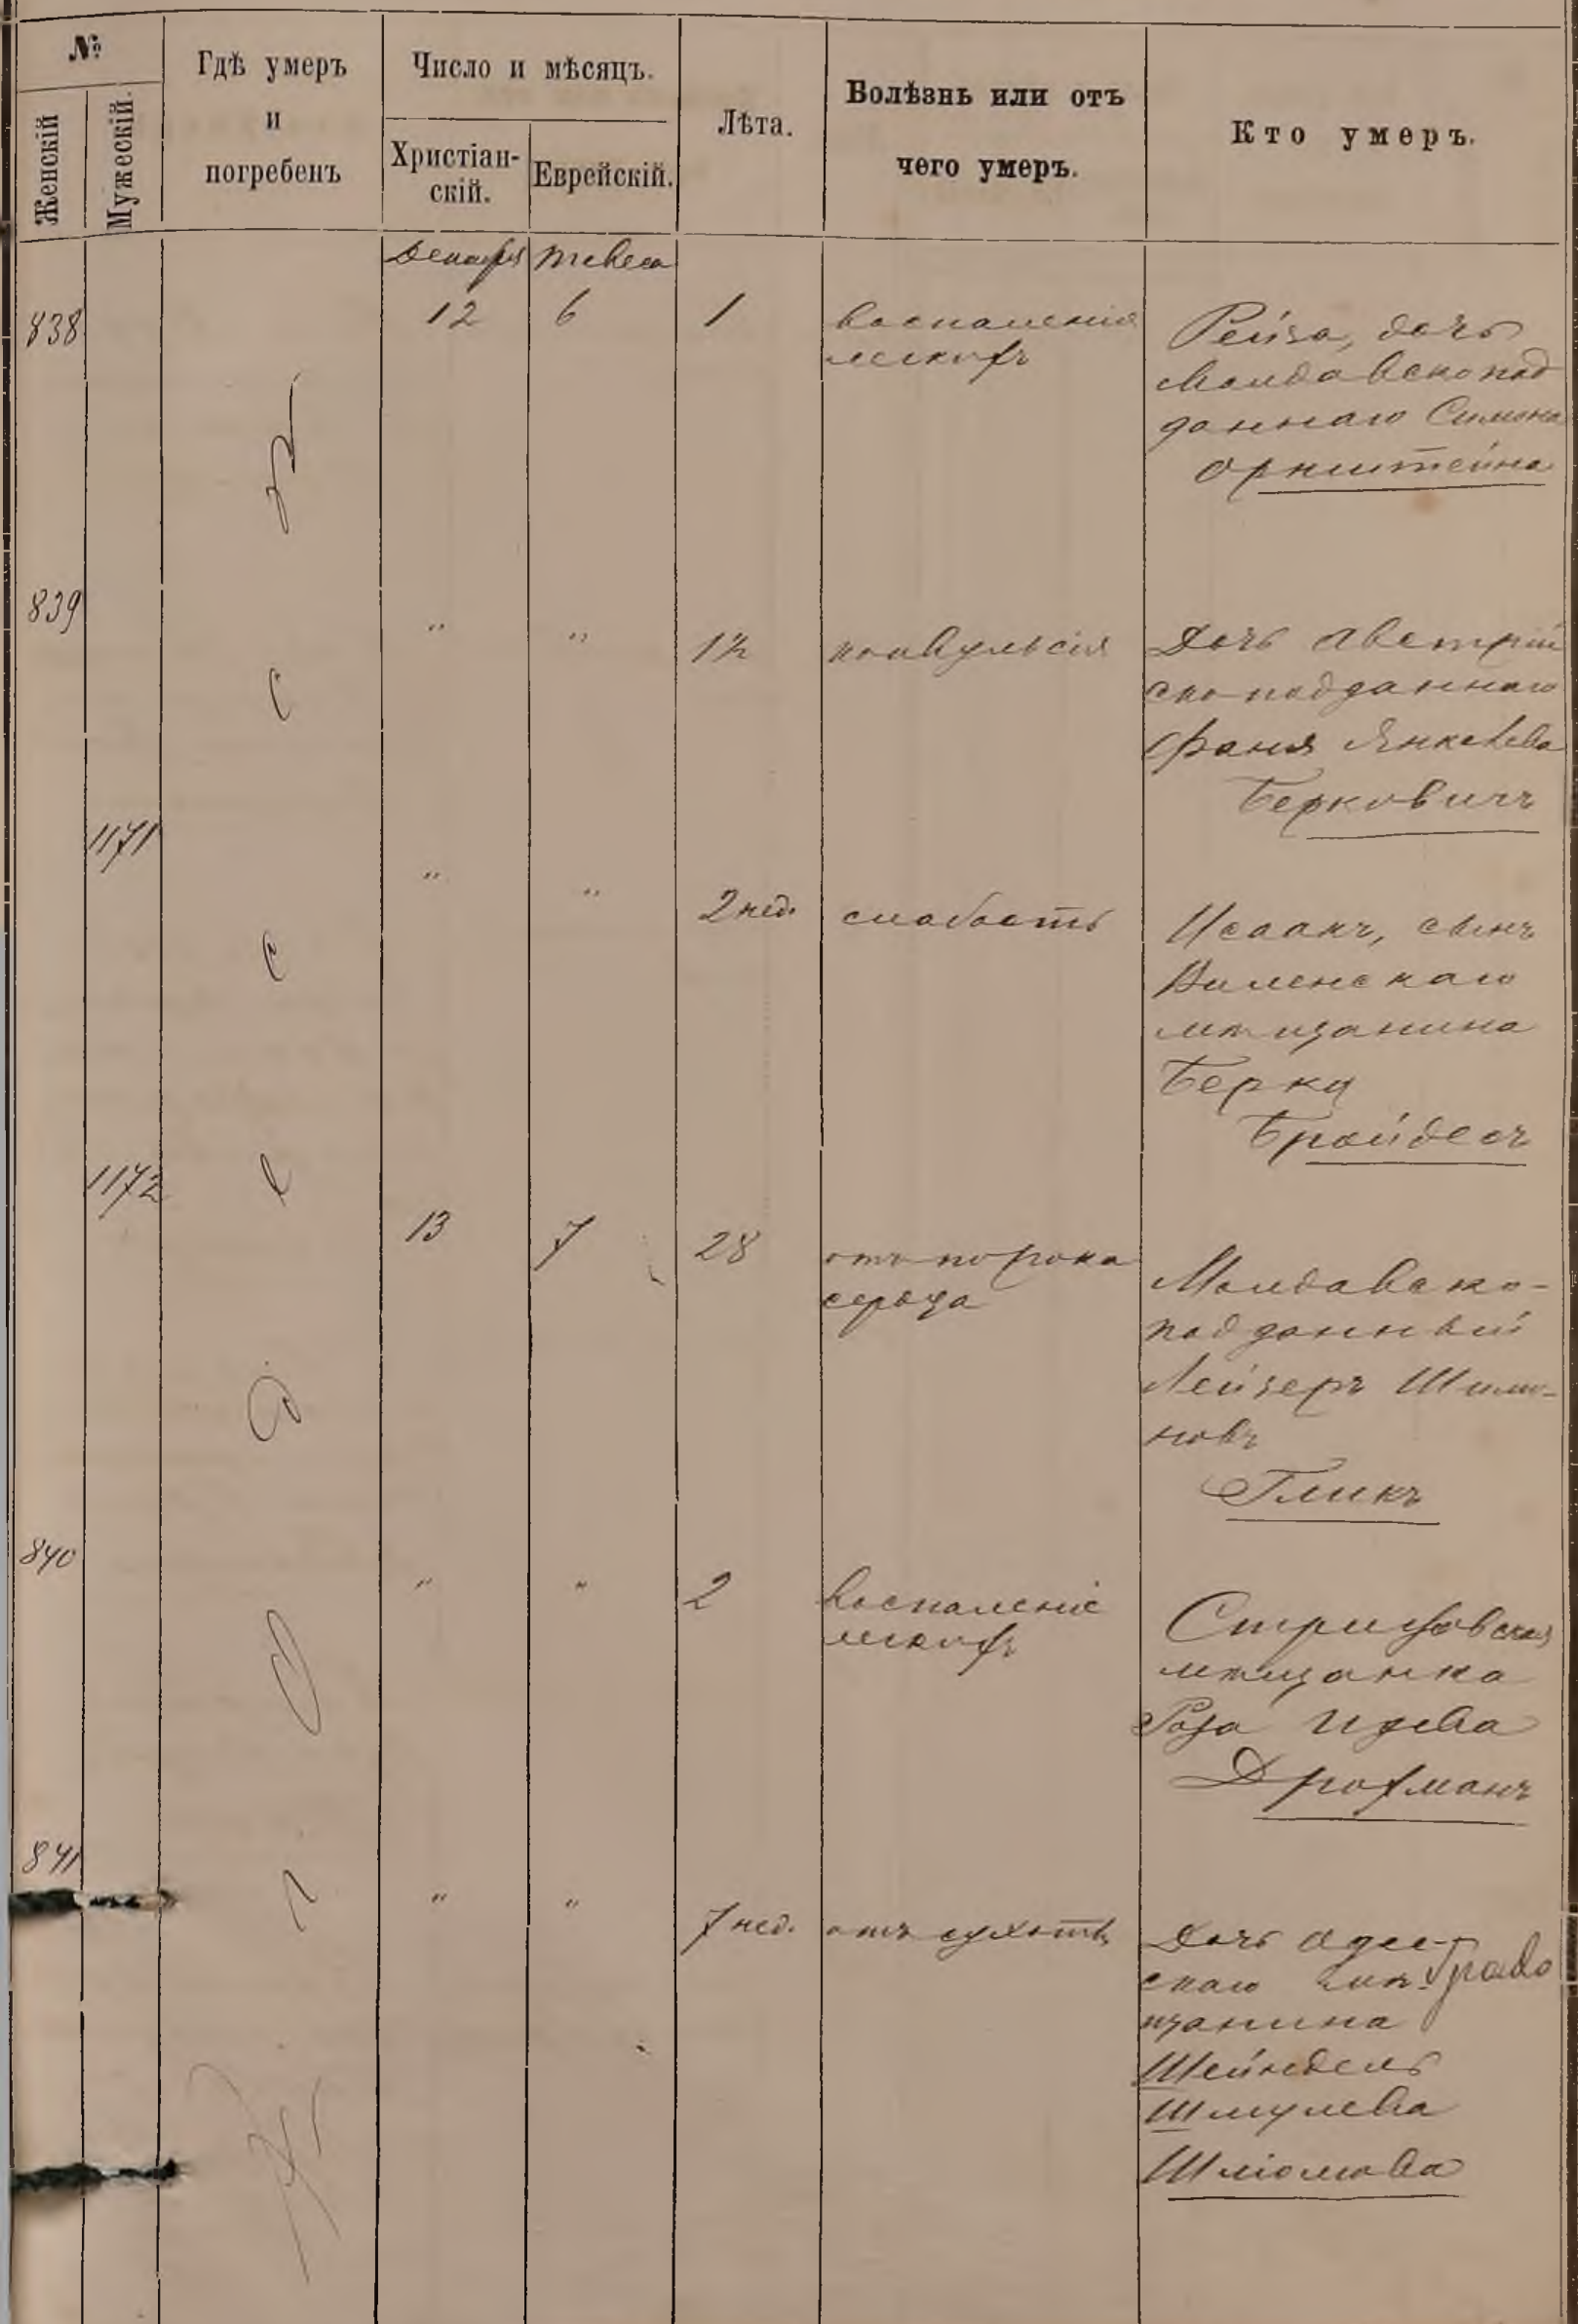 №
Женскій
Мужескій.
Гдѣ умеръ
и
погребенъ
Число и мѣсяцъ.
Христіан-
скій.
Еврейскій.
Лѣта.
Болѣзнь или отъ
чего умеръ.
Кто умеръ.
Декабря Тевеса
838 12 6 1 воспаленіе
легкихъ
Рейза, дочь
Молдавско под
даннаго Симона
Орнштейна
839 " " 1½ конвульсія
Дочь Австрій
ско-подданнаго
Фаня Янкелева
Берковичъ
1171 " " 2 нед. слабость
Исаакъ, сынъ
Виленскаго
мѣщанина
Берки
Бройдесъ
1172 13 7 28 отъ порока
сердца
Молдавско-
подданный
Лейзеръ Шимо-
новъ
Гликъ
840 " " 2 воспаленіе
легкихъ
мѣщанка
Роза
Дрофманъ
841 " " 7 нед. отъ сухоты
Дочь Одес-
скаго мѣ-
щанина
Шейндель
Шмулева
Шліомова
Одесса